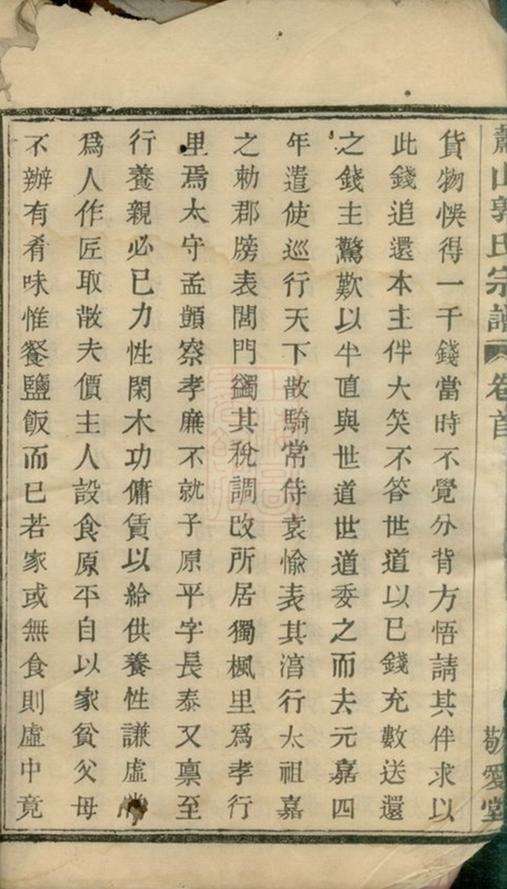 蕭山郭氏宗譜
卷首
敬愛堂
貨物悞得一千錢當時不覺分背方悟請其伴求以
此錢追還本主伴大笑不答世道以已錢充數送還
之錢主驚歎以半直與世道世道委之而去元嘉四
年遣使巡行天下散騎常侍袁愉表其淳行太祖嘉
之勅郡牓表閭門蠲其稅調改所居獨楓里爲孝行
里焉太守孟顗察孝廉不就子原平字長泰又禀至
行養親必已力性閑木功傭賃以給供養性謙虛常
爲人作匠取散夫價主人設食原平自以家貧父母
不辦有肴味惟餐鹽飯而已若家或無食則虛中竟